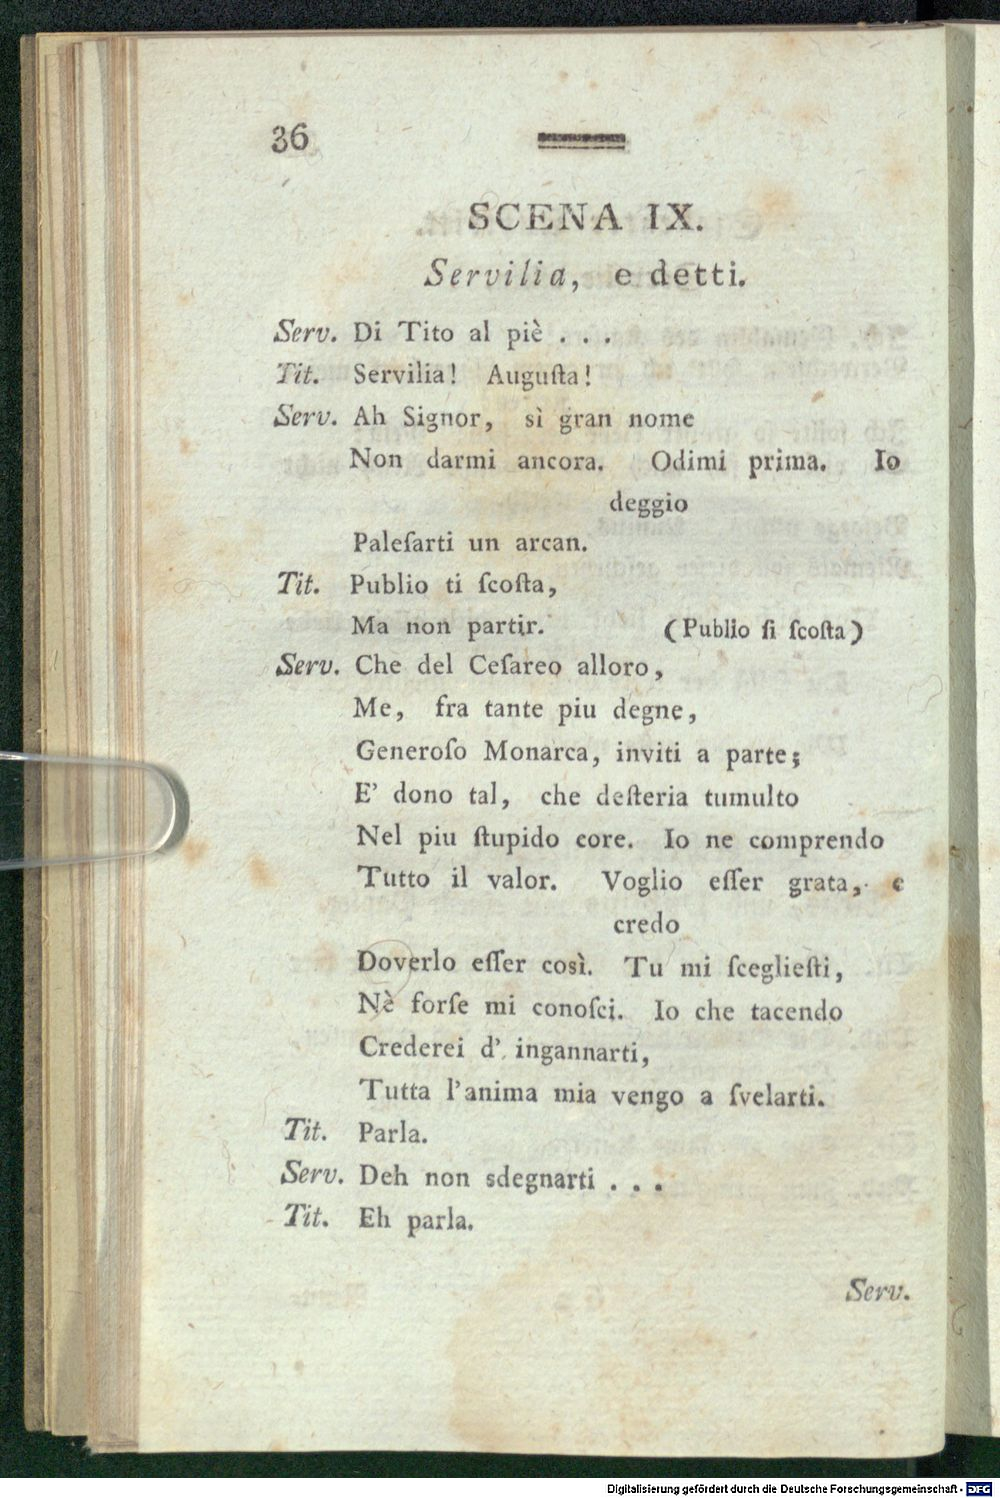 36
SCENA IX.
Servilia, e detti.
Serv. Di Tito al piè . . .
Tit. Servilia! Auguſta!
Serv. Ah Signor, sì gran nome
Non darmi ancora. Odimi prima. Io
deggio
Paleſarti un arcan.
Tit. Publio ti ſcoſta,
Ma non partir. (Publio ſi ſcoſta)
Serv. Che del Ceſareo alloro,
Me, fra tante piu degne,
Generoſo Monarca, inviti a parte;
E' dono tal, che deſteria tumulto
Nel piu ſtupido core. Io ne comprendo
Tutto il valor. Voglio eſſer grata, e
credo
Doverlo eſſer così. Tu mi ſceglieſti,
Nè forſe mi conoſci. Io che tacendo
Crederei d' ingannarti,
Tutta l'anima mia vengo a ſvelarti.
Tit. Parla.
Serv. Deh non sdegnarti . . .
Tit. Eh parla.
Serv.
Digitalisierung gefördert durch die Deutsche Forschungsgemeinschaft - DFG